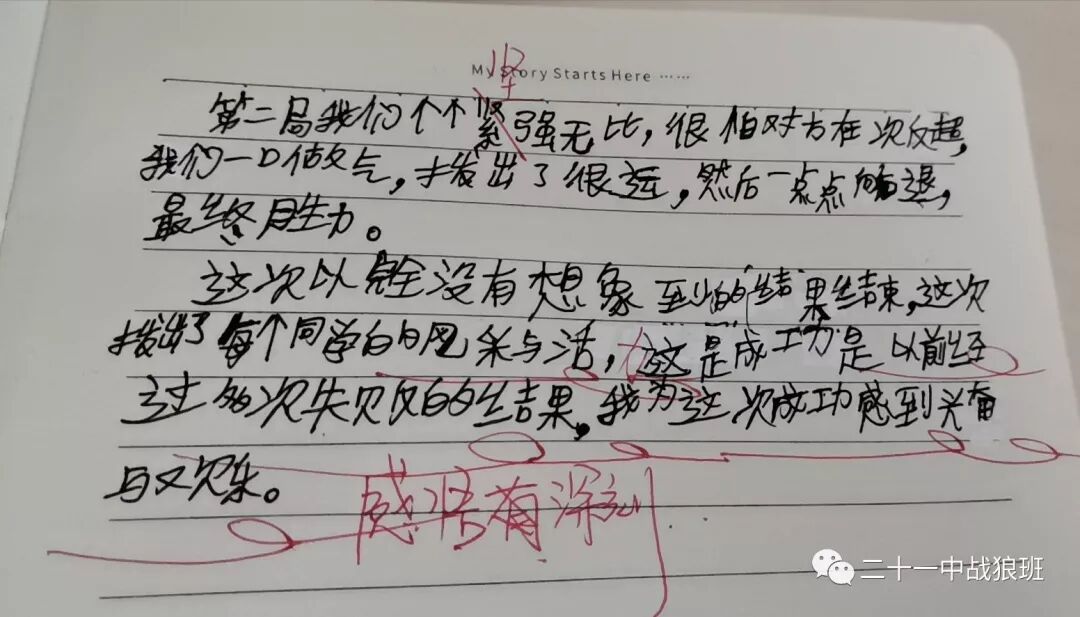 坚
My Story Starts Here ……
第二局我们个个紧强无比，很怕对方在次反超，
我们一口做气，拨出了很远，然后一点点退，
最终胜力。
这次以完全没有想象到的结果结束，这次
拨出了每个同学的风采与活力，这是成功是以前经
过多次失败的的结果，我为这次成功感到兴奋
与又欢乐。
感悟有深刻
二十一中战狼班